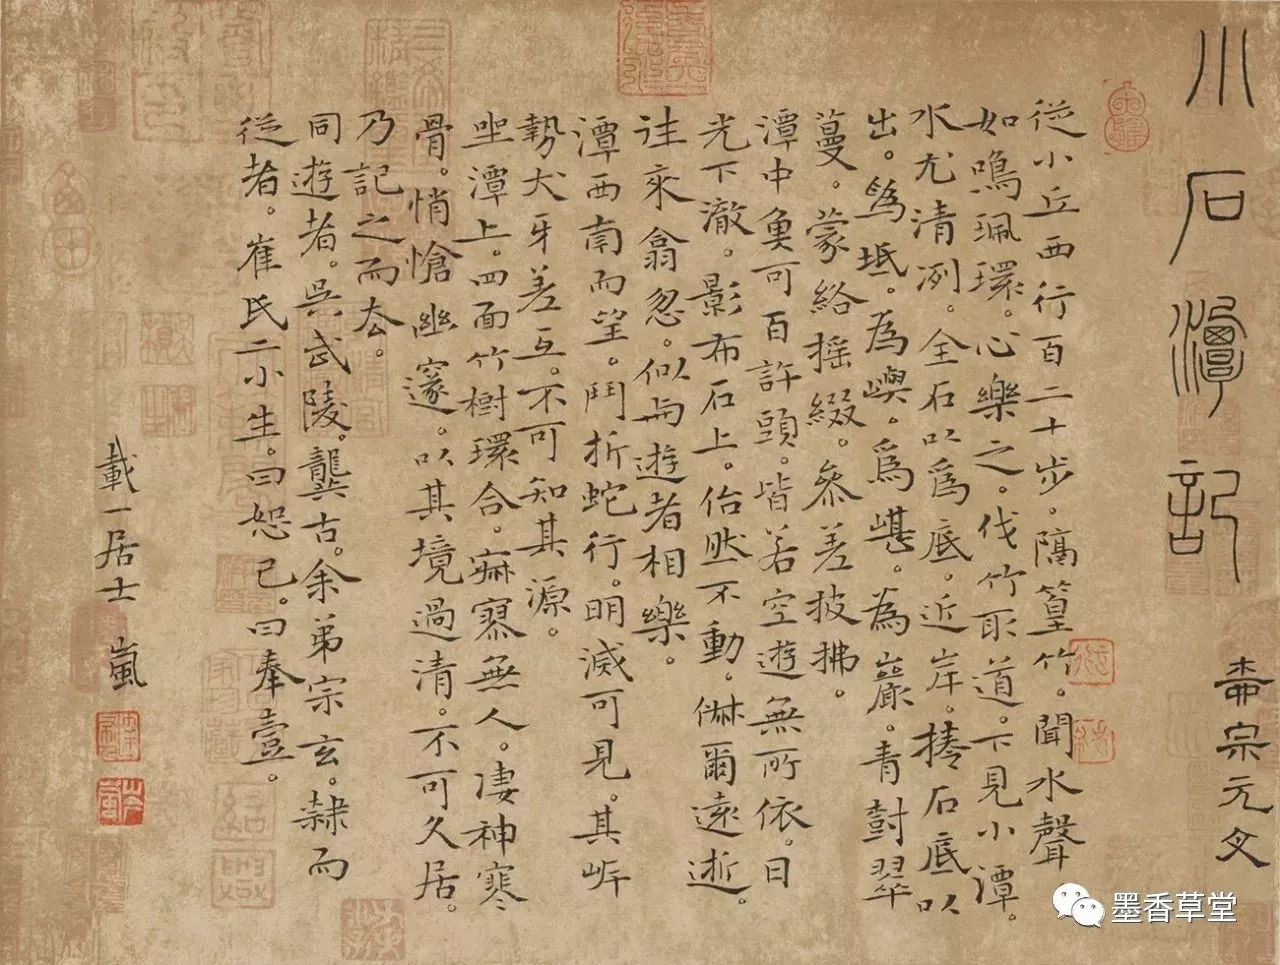 小石潭記
柳宗元文
從小丘西行百二十步。隔篁竹。聞水聲
如鳴珮環。心樂之。伐竹取道。下見小潭。
水尤清冽。全石以為底。近岸。捲石底以
出。為坻。為嶼。為嵁。為巖。青樹翠
蔓。蒙絡搖綴。參差披拂。
潭中魚可百許頭。皆若空遊無所依。日
光下澈。影布石上。佁然不動。俶爾遠逝。
往來翕忽。似与遊者相樂。
潭西南而望。鬥折蛇行。明滅可見。其岸
勢犬牙差互。不可知其源。
坐潭上。四面竹樹環合。寂寥無人。凄神寒
骨。悄愴幽邃。以其境過清。不可久居。
乃記之而去。
同遊者。吳武陵。龔古。余弟宗玄。隸而
從者。崔氏二小生。曰恕己。曰奉壹。
載一居士 嵐
墨香草堂